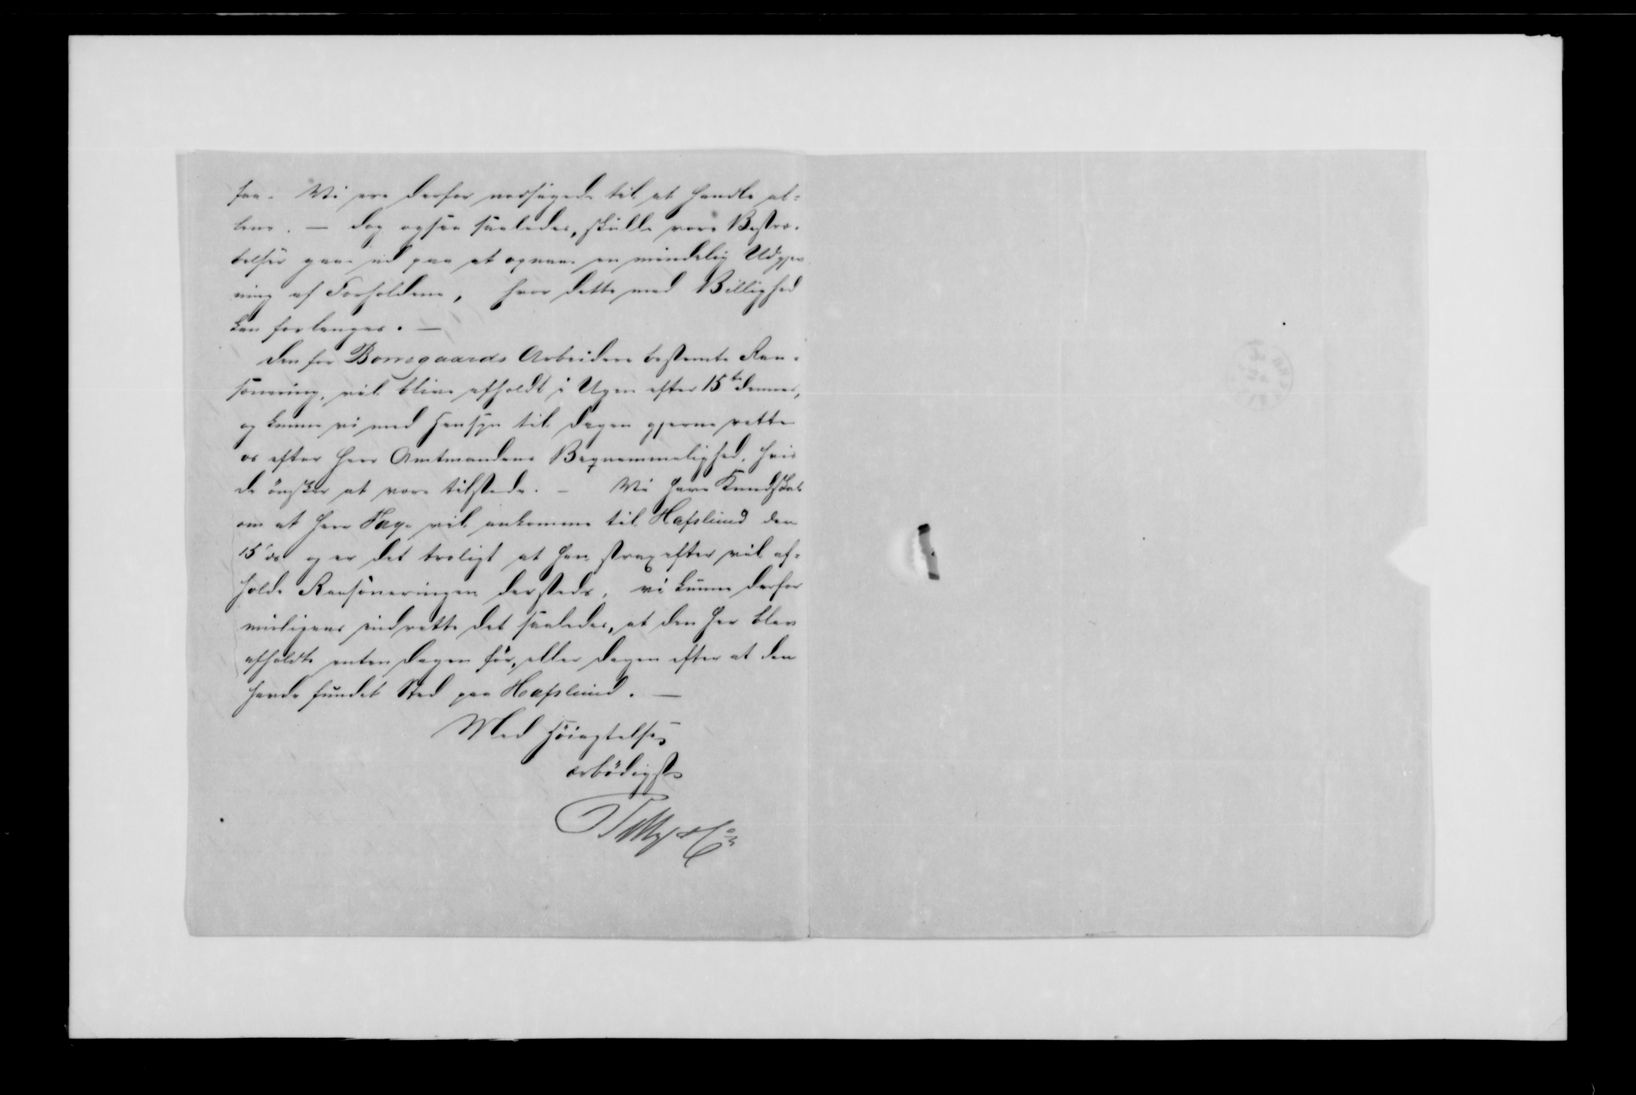 saa. Vi ere derfor nødsagede til at handle al-
lene. — dog ogsaa saaledes, skulle vore Bestræ-
belser gaae ud paa at opnaae en mindelig Udjev-
ning af Forholdene, hvor dette med Billighed
kan forlanges. —
Den for Borregaards Arbeidere bestemte Ran-
sonering, vil blive afholdt i Ugen efter 15de dennes,
og kunne vi med Hensyn til Dagen gjerne rette
os efter Herr Amtmandens Beqvemmelighed, hvis
De ønsker at være tilstede. — Vi have Kundskab
om at Herr vil ankomme til Hafslund den
15de ds og er det troligt at han strax efter vil af-
holde Ransoneringen dersteds, vi kunne derfor
muligens indrette det saaledes, at den her blev
afholdt enten Dagen før, eller Dagen efter at den
havde fundet Sted paa Hafslund. —
Med Høiagtelse
ærbødigst